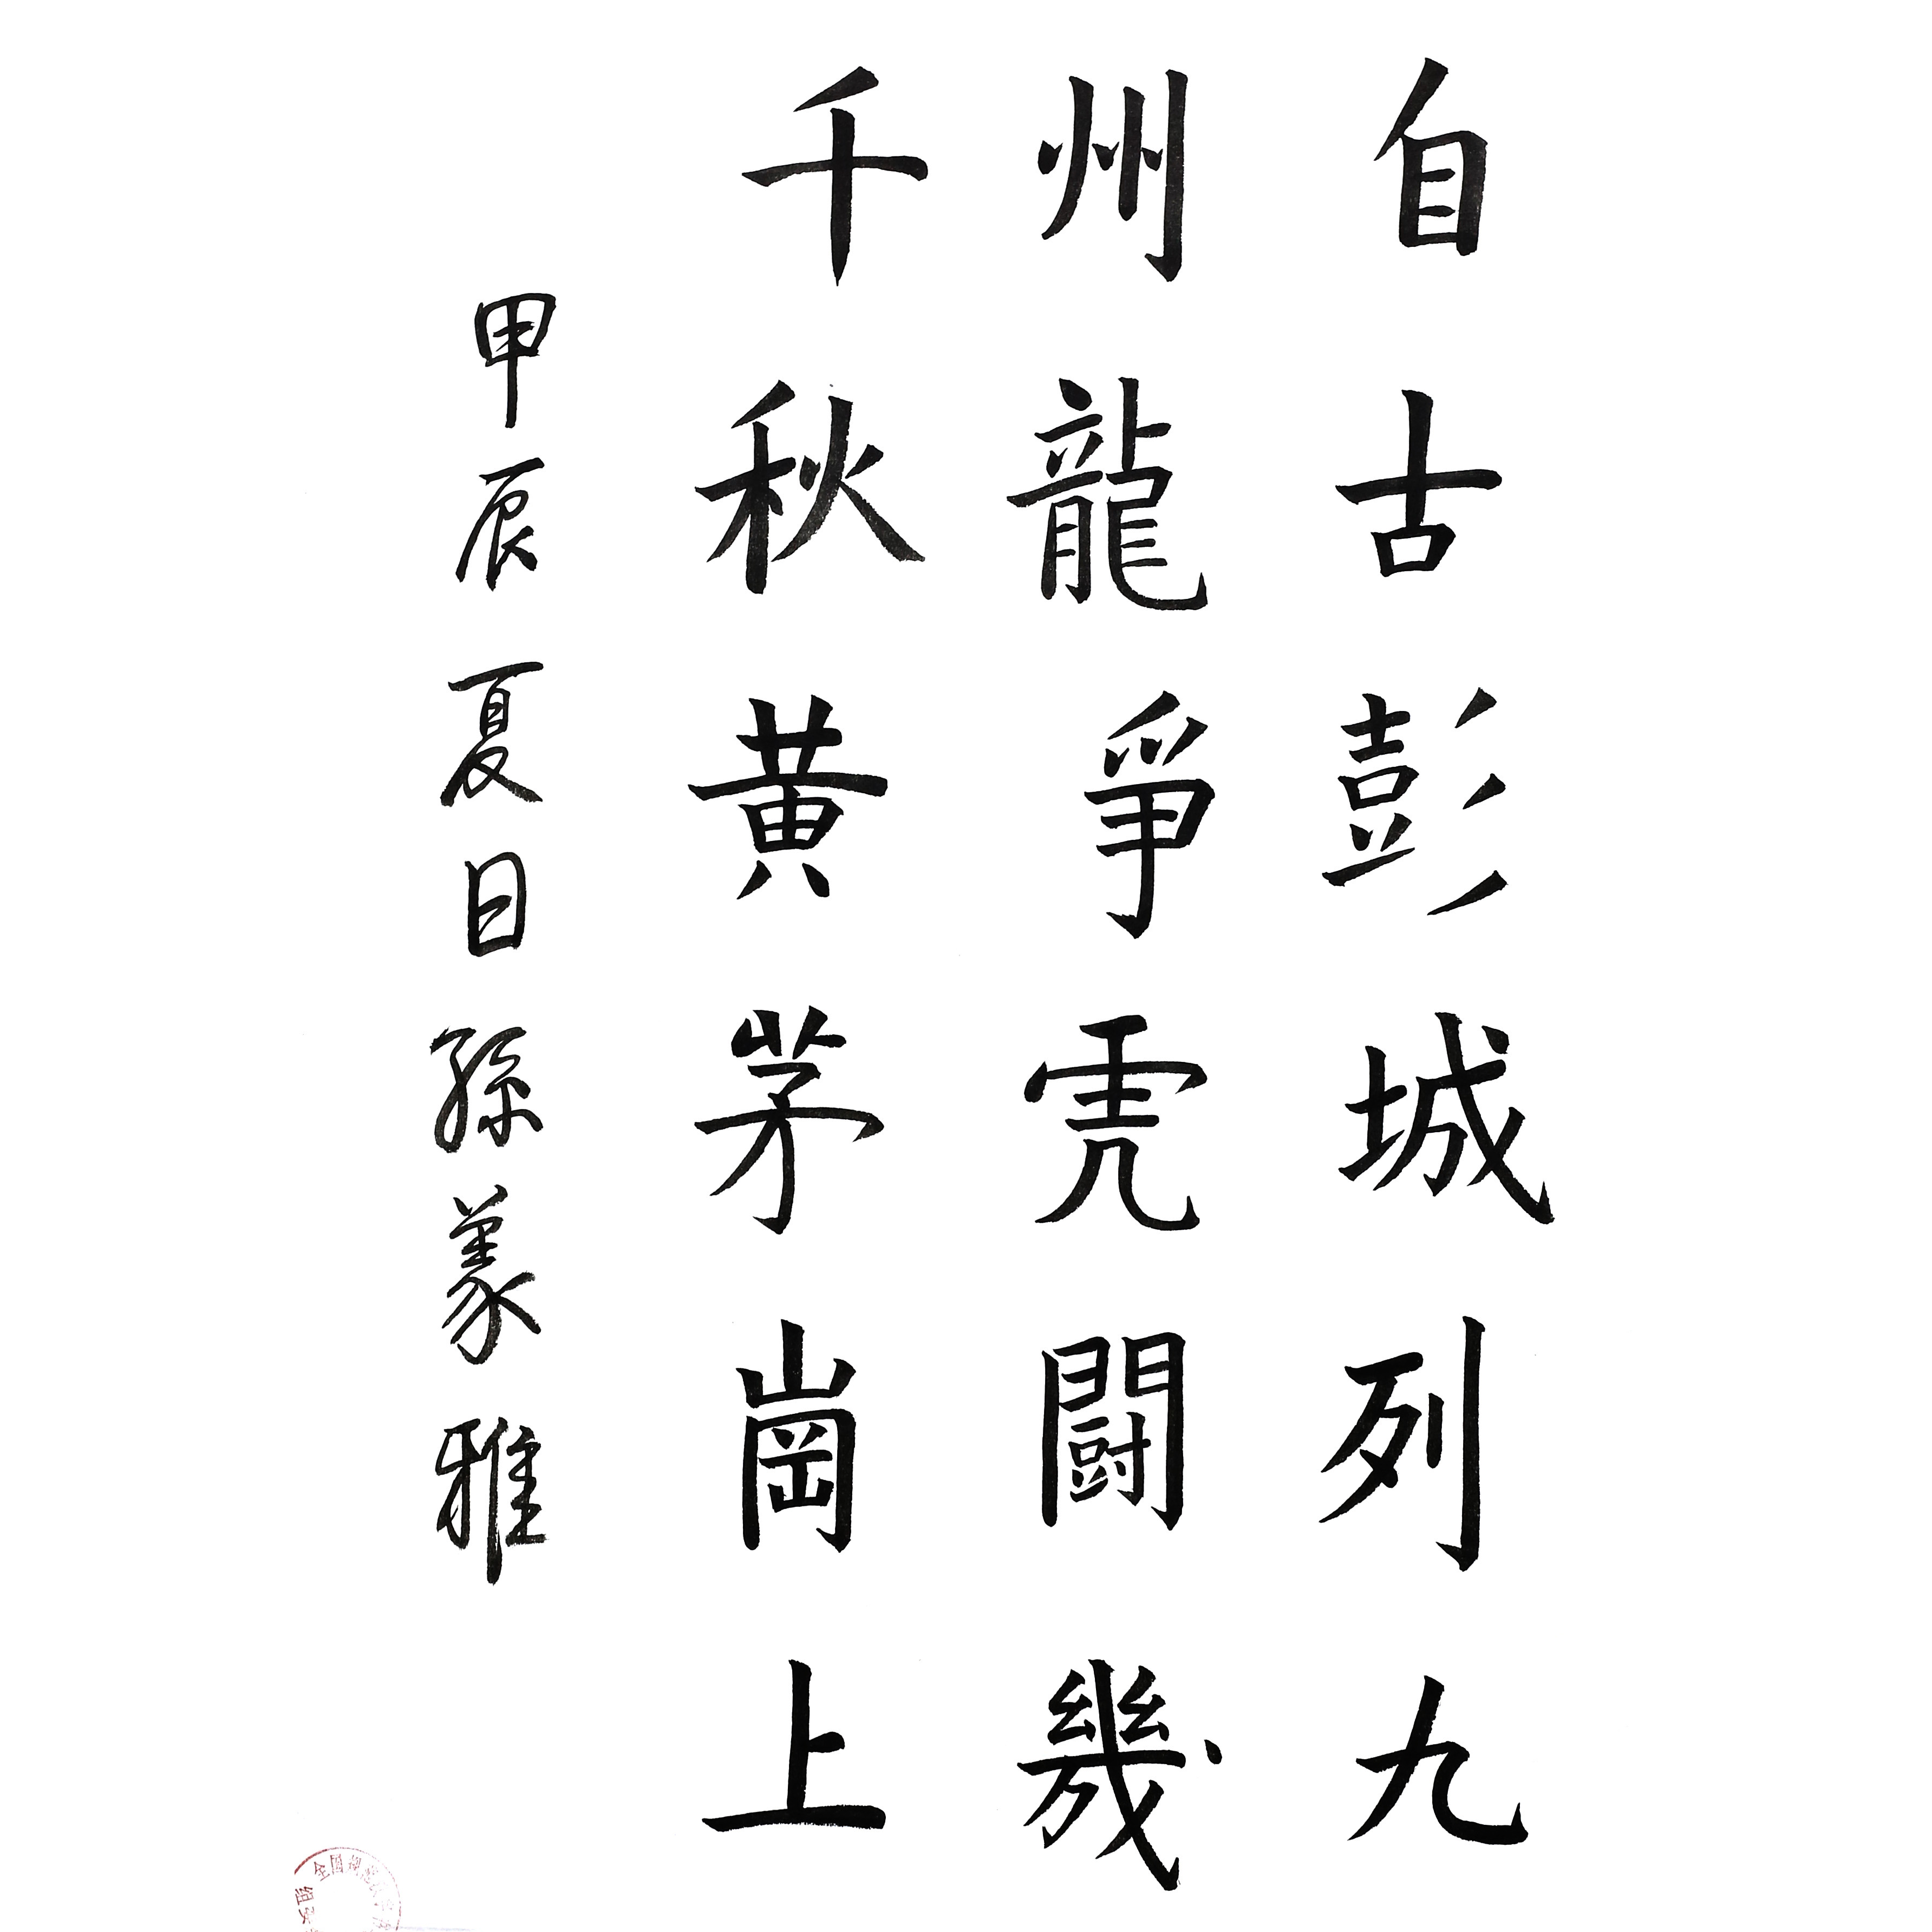 自古彭城列九
州龍爭虎鬭幾
千秋黄茅崗上
甲辰夏日孫義雅
全国